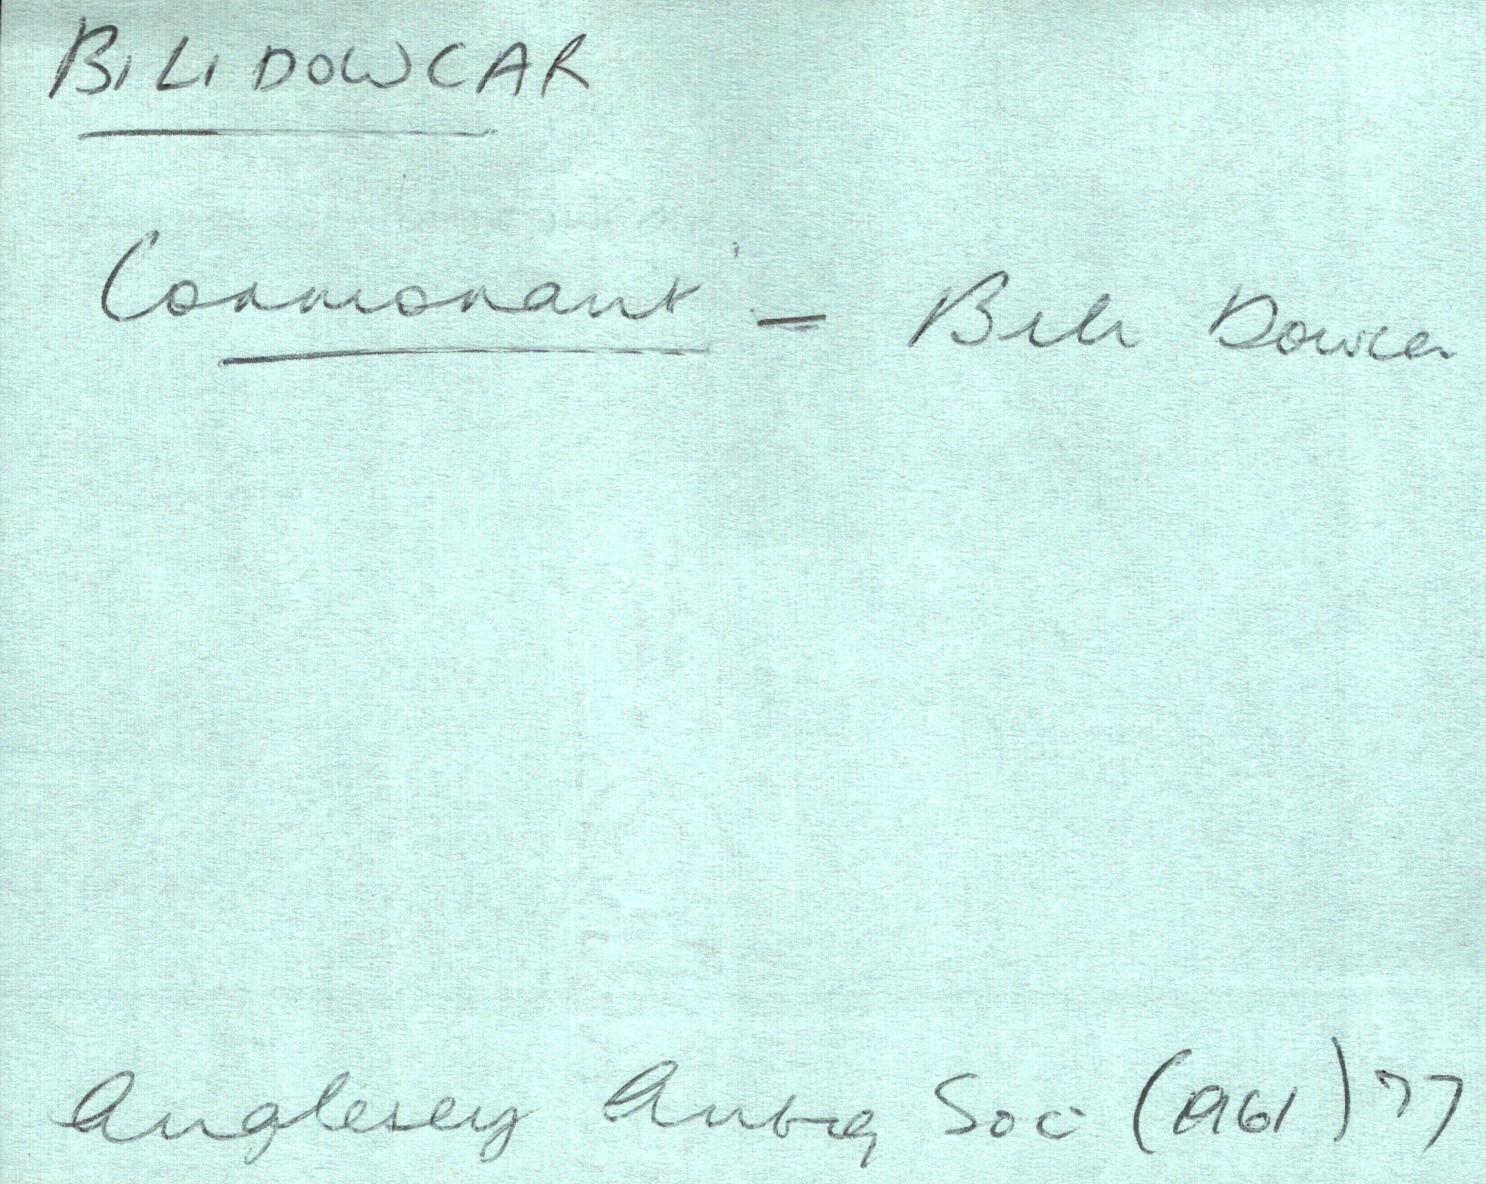 BILIDOWCAR
Cormorant - Bili Dowcar
Anglesey Antiq Soc (1961) 77